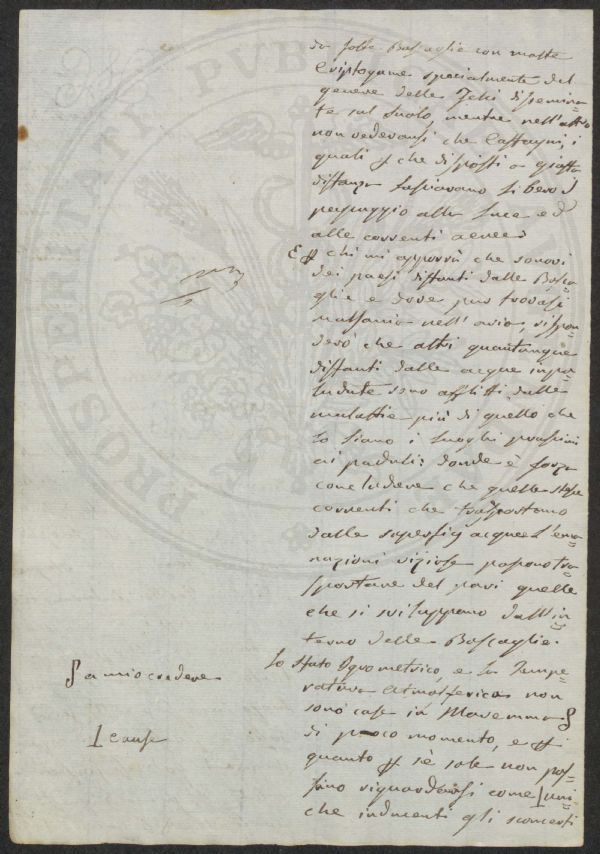 da folte Boscaglie con molte
Criptogame specialmente del
genere delle Felci dissemina=
te sul suolo, mentre nell'altro
non vedevansi che Castagni, i
quali che disposti a giusta
distanza lasciavano libero il
passaggio alla luce ed
alle correnti aeree.
E chi mi opporrà che sonovi
dei paesi distanti dalle Bosca=
glie e dove pur trovasi
malsania nell'aria, rispon=
derò che altri quantunque
distanti dalle acque impa=
ludate sono afflitti dalle
malattie più di quello che
lo siano i luoghi prossimi
ai paduli; donde è forza
concludere che quelle stesse
correnti che trasportano
dalle superfici acquee l'ema=
nazioni viziose possono tra=
sportare del pari quelle
che si sviluppano dall'in=
terno delle Boscaglie.
Lo stato Igrometrico, e la Tempe=
ratura atmosferica non
sono cose in Maremma
di poco momento, e
quanto sè sole non pos=
sino riguardarsi come uni=
che inducenti gli sconcerti
a mio credere
cause
PVB